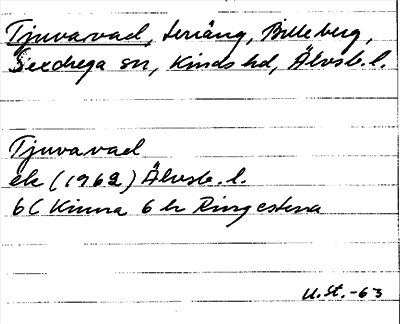 Tjuvavad, teräng, Billeberg,
Sexdrega sn, Kinds hd, Älvsb. l.
Tjuvavad
ek (1962) Älvsb. l.
6C Kinna 6 h Ringestena
U.St.-63